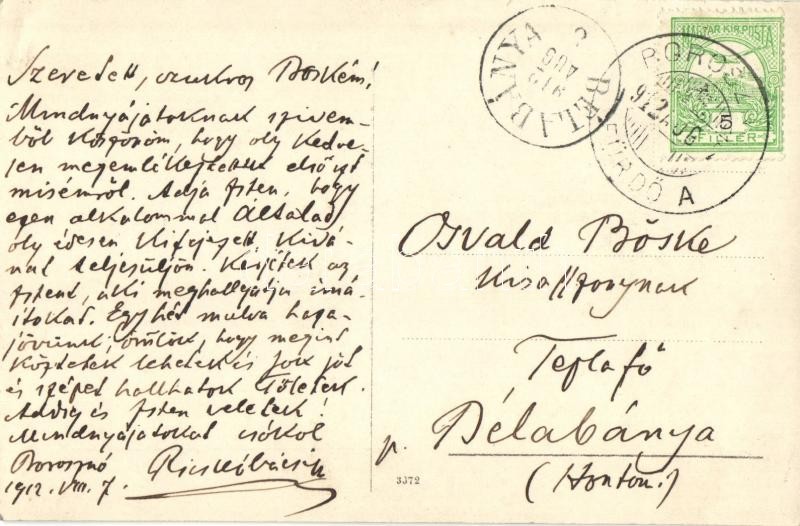 Szeretett, czukros Bőském!
Mindnyájatoknak szivem-
ből köszönöm, hogy oly kedve-
sen megemlékeztetek első szt
misémről. Adja Isten, hogy
ezen alkalommal Általad
oly édesen kifejezett kivá-
nat teljesüljön. Kérjétek az
Istent, aki meghallgatja imá-
itokat. Egy hét mulva haza-
jövünk; örülök, hogy megint
köztetek lehetek és sok jót
és szépet hallhatok Tőletek.
Addig is Isten veletek!
Mindnyájatokat csókol
Borosznó
1912. VIII. 7.
BÉLABÁNYA
912 AUG
POROSZ
FÜRDŐ A
912 AUG
MAGYAR KIR. POSTA
FILLÉR
Osvald Böske
kisasszonynak
Teplafő
p. Bélabánya
(Honton.)
3372